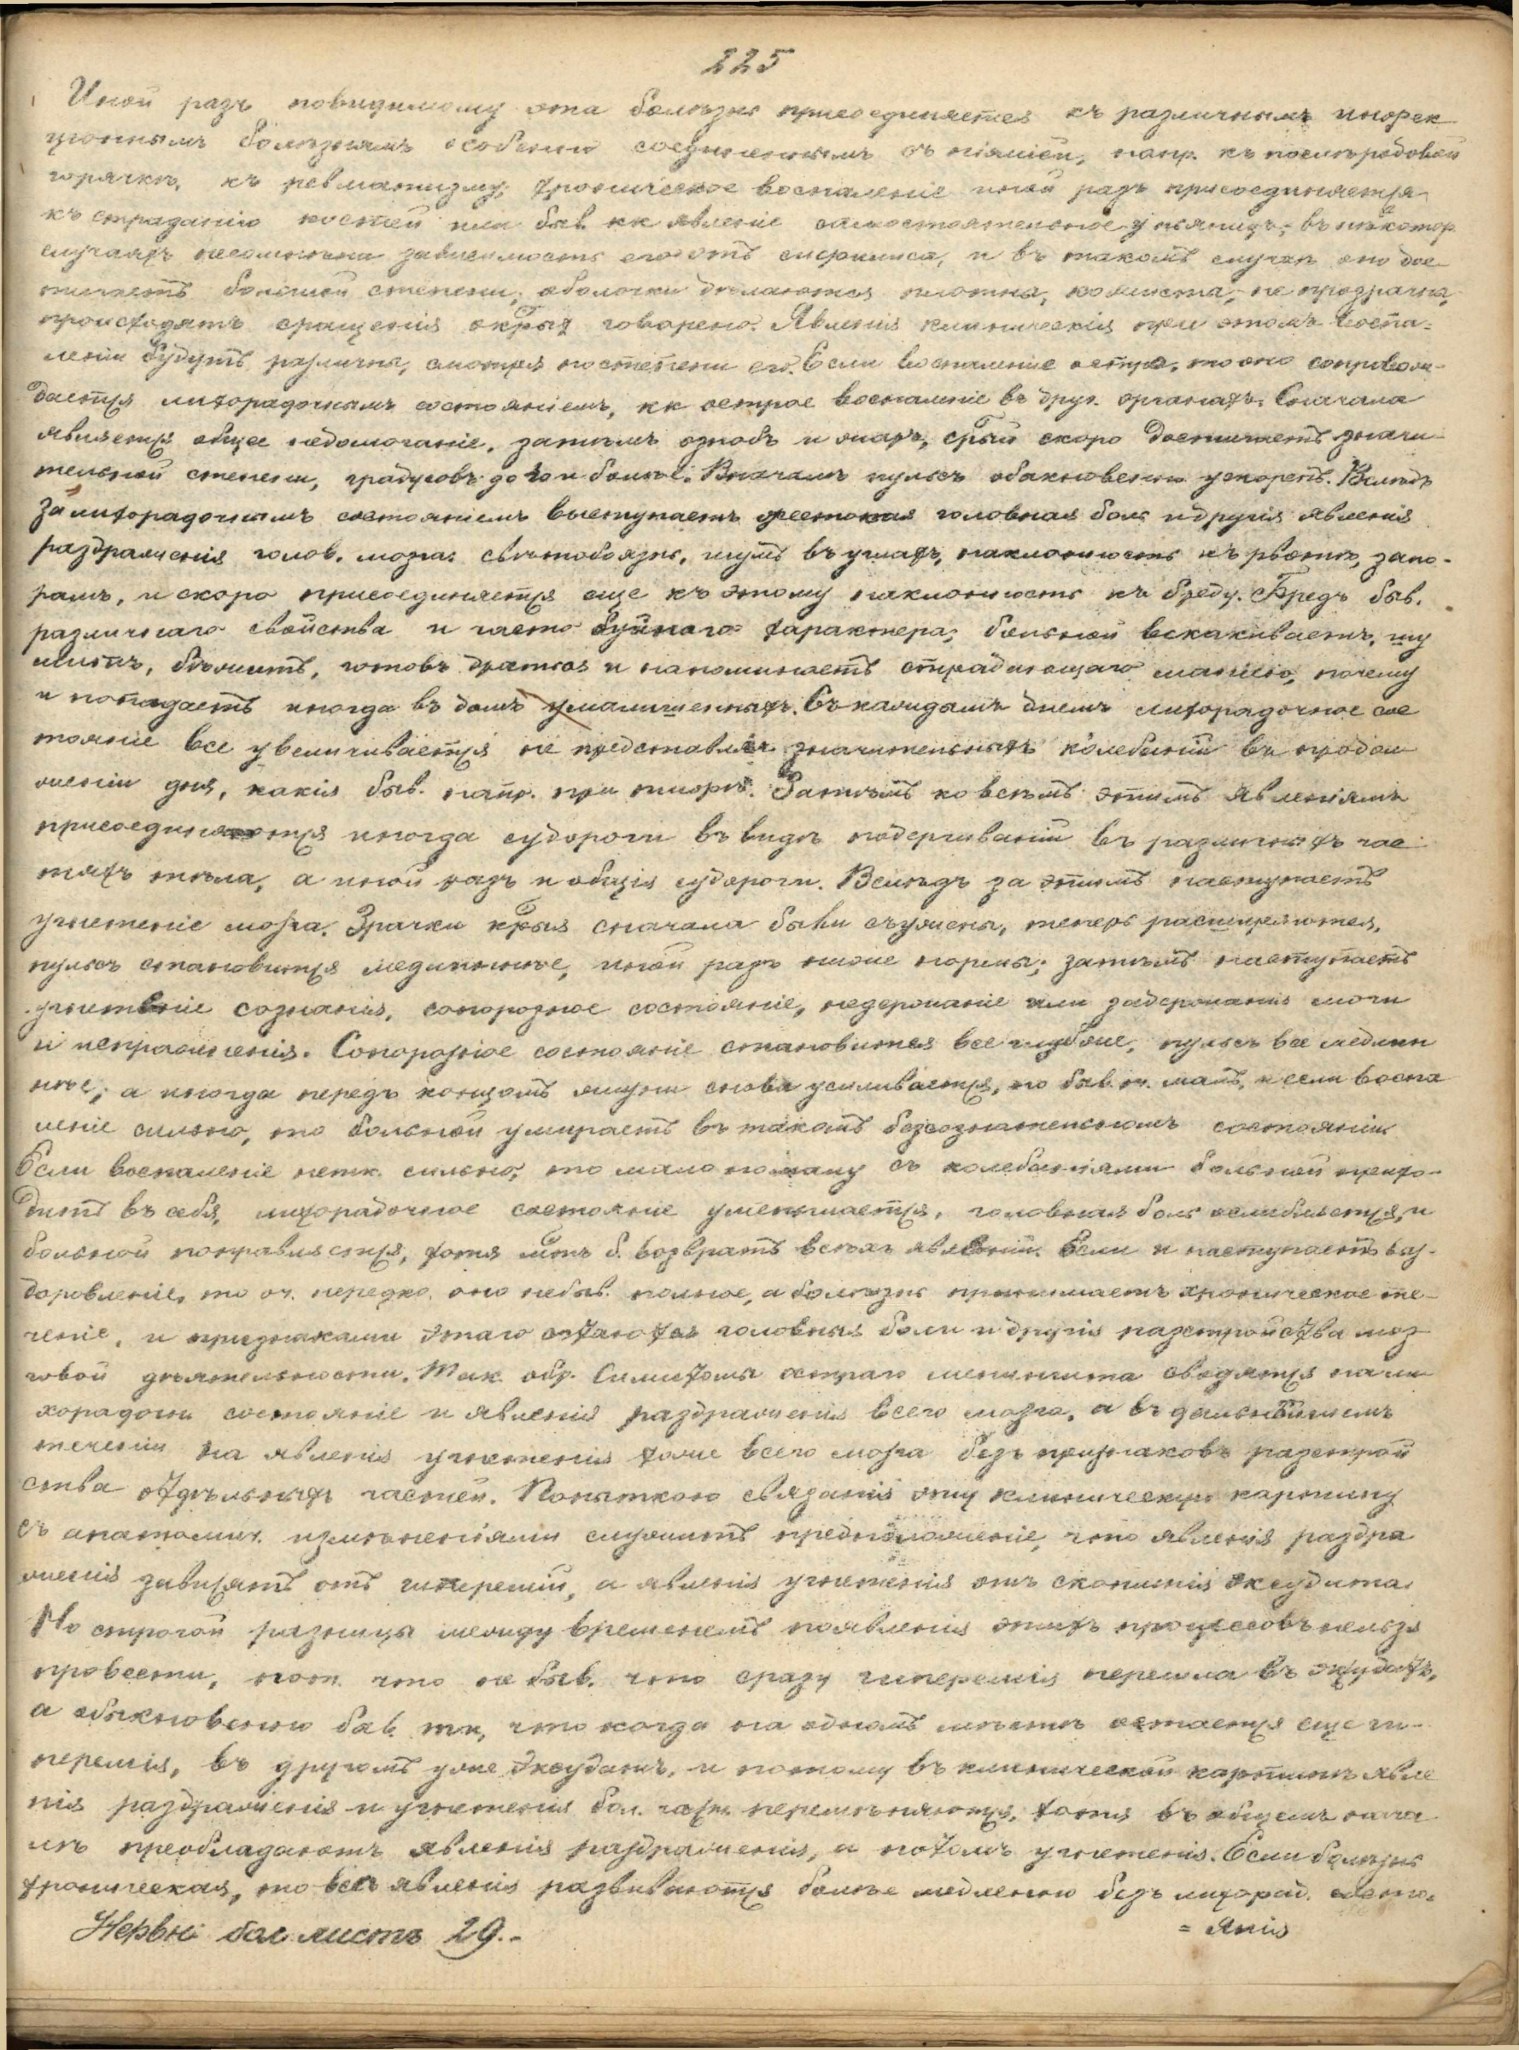 225
Иной разъ повидимому эта болѣзнь присоединяется къ различнымъ инфек
ціоннымъ болѣзнямъ особенно соединеннымъ съ піэміей, напр. къ послѣродовой
горячкѣ, къ ревматизму; хроническое воспаленіе иной разъ присоединяется
къ страданію костей или быв. кк явленіе самостоятельное у пьяницъ; въ нѣкотор.
случаяхъ несомнѣнна зависимость его отъ сифилиса, и въ такомъ случаѣ оно дос
тигаетъ большой степени; оболочки дѣлаются плотны, кожисты, не прозрачны,
происходятъ сращенія о крых говорено. Явленія клиническія при этомъ воспа-
леніи будутъ различны, смотря по степени его. Если воспаленіе остро, то оно сопровож-
дается лихорадочнымъ состояніемъ, кк острое воспаленіе въ друг. органахъ. Сначала
является общее недомоганіе, затѣмъ ознобъ и жаръ, крый скоро достигаетъ значи-
тельной степени, градусовъ до 40 и болѣе. Вначалѣ пульсъ обыкновенно ускоренъ. Вслѣдъ
за лихорадочнымъ состояніемъ выступаетъ жестокая головная боль и другія явленія
раздраженія голов. мозга: свѣтобоязнь, шумъ въ ушахъ, наклонность къ рвотѣ, запо-
рамъ, и скоро присоединяется еще къ этому наклонность къ бреду. Бредъ быв.
различнаго свойства и часто буйнаго характера; больной вскакиваетъ, шу
митъ, бѣжитъ, готовъ драться и напоминаетъ страдающаго маніею, почему
и попадаетъ иногда въ домъ умалишенныхъ. Съ каждымъ днемъ лихорадочное сос
тояніе все увеличивается не представляя значительныхъ колебаній въ продол
женіи дня, какія быв. напр. при тифѣ. Затѣмъ ко всѣмъ этимъ явленіямъ
присоединяются иногда судороги въ видѣ подергиваній въ различныхъ час
тяхъ тѣла, а иной разъ и общія судороги. Вслѣдъ за этимъ наступаетъ
угнетеніе мозга. Зрачки крые сначала были съужены, теперь расширяются,
пульсъ становится медленнѣе, иной разъ ниже нормы; затѣмъ наступаетъ
угнетеніе сознанія, сопорозное состояніе, недержаніе или задержаніе мочи
и испражненія. Сопорозное состояніе становится все глубже, пульсъ все медлен
нѣе; а иногда передъ концомъ жизни снова усиливается, но быв. оч. малъ, и если воспа
леніе сильно, то больной умираетъ въ такомъ безсознательномъ состояніи.
Если воспаленіе не тк. сильно, то мало по малу съ колебаніями больной прихо-
дитъ въ себя, лихорадочное состояніе уменьшается, головная боль ослабляется, и
больной поправляется, хотя мтъ б. возвратъ всѣхъ явленій. Если и наступаетъ выз-
доровленіе, то оч. нередко оно не быв. полное, а болѣзнь принимаетъ хроническое те-
ченіе, и признаками этаго остаются головныя боли и другія разстройства моз
говой дѣятельности. Так. обр. симптомы остраго менингита сводятся на ли
хорадочн. состояніе и явленія раздраженія всего мозга, а въ дальнѣйшемъ
теченіи на явленія угнетенія тоже всего мозга безъ признаковъ разстрой
ства отдѣльныхъ частей. Попыткою связанія эту клиническую картину
съ анатомич. измѣненіями служитъ предположеніе, что явленія раздра
женія зависятъ отъ гипереміи, а явленія угнетенія отъ скопленія эксудата.
Но строгой разницы между временемъ появленія этихъ процессовъ нельзя
провести, пот. что не быв. что сразу гиперемія перешла въ эксудатъ,
а обыкновенно быв. тк, что когда на одномъ мѣстѣ остается еще ги-
перемія, въ другомъ уже эксудатъ, и потому въ клинической картинѣ явле
нія раздраженія и угнетенія бол. част. перемѣняются, хотя въ общемъ нача
лѣ преобладаютъ явленія раздраженія, а потомъ угнетенія. Если болѣзнь
хроническая, то всѣ явленія развиваются болѣе медленно безъ лихорад. состо-
= янія
Нервн. бол листъ 29.-